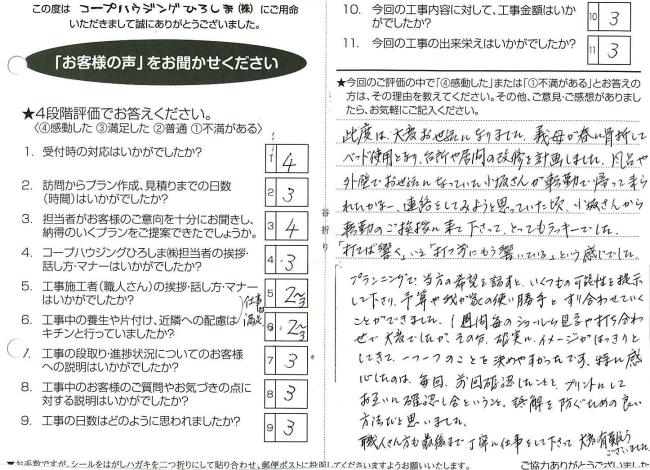 この度は コープハウジングひろしま(株) にご用命
いただきまして誠にありがとうございました。
「お客様の声」をお聞かせください
★4段階評価でお答えください。
〈④感動した ③満足した ②普通 ①不満がある〉
1. 受付時の対応はいかがでしたか? 1 4
2. 訪問からプラン作成、見積りまでの日数
(時間)はいかがでしたか? 2 3
3. 担当者がお客様のご意向を十分にお聞きし、
納得のいくプランをご提案できたでしょうか。 3 4
4. コープハウジングひろしま㈱担当者の挨拶・
話し方・マナーはいかがでしたか? 4 3
5. 工事施工者(職人さん)の挨拶・話し方・マナー
はいかがでしたか? 5 2~3
仕事
満足
6. 工事中の養生や片付け、近隣への配慮は
キチンと行っていましたか? 6 2~3
7. 工事の段取り・進捗状況についてのお客様
への説明はいかがでしたか? 7 3
8. 工事中のお客様のご質問やお気づきの点に
対する説明はいかがでしたか? 8 3
9. 工事の日数はどのように思われましたか? 9 3
谷折り
10. 今回の工事内容に対して、工事金額はいか
がでしたか? 10 3
11. 今回の工事の出来栄えはいかがでしたか? 11 3
★今回のご評価の中で「④感動した」または「①不満がある」とお答え
の方は、その理由を教えてください。その他、ご意見・ご感想がありまし
たら、お気軽にご記入ください。
此度は、大変お世話になりました。義母が春に骨折して
ベッド使用となり、台所や居間の改修を計画しました。風呂や
外壁でお世話になっていた小坂さんが転勤で帰って来ら
れたかなー、連絡をしてみようと思っていた頃、小坂さんから
転勤のご挨拶に来て下さって、とってもラッキーでした。
「打てば響く」いえ「打つ前にもう響いている」という感じでした。
プランニングで、当方の希望を話すと、いくつもの可能性を提示
して下さり、予算や我が家の使い勝手とすり合わせていく
ことができました。1週間毎のショールーム見学や打ち合わ
せで大変でしたが、その分、確実に、イメージがはっきりと
してきて、一つ一つのことを決めやすかったです。特に感
心したのは、毎回、前回確認したことを、プリントにして
お互いに確認し合うということ、誤解を防ぐための良い
方法だと思いました。
職人さん方も最後まで丁寧に仕事をして下さって大変有難う
ございました。
▼お手数ですが、シールをはがしハガキを二つ折りにして貼り合わせ、郵便ポストに投函してくださいますようお願いいたします。 ご協力ありがとうございました